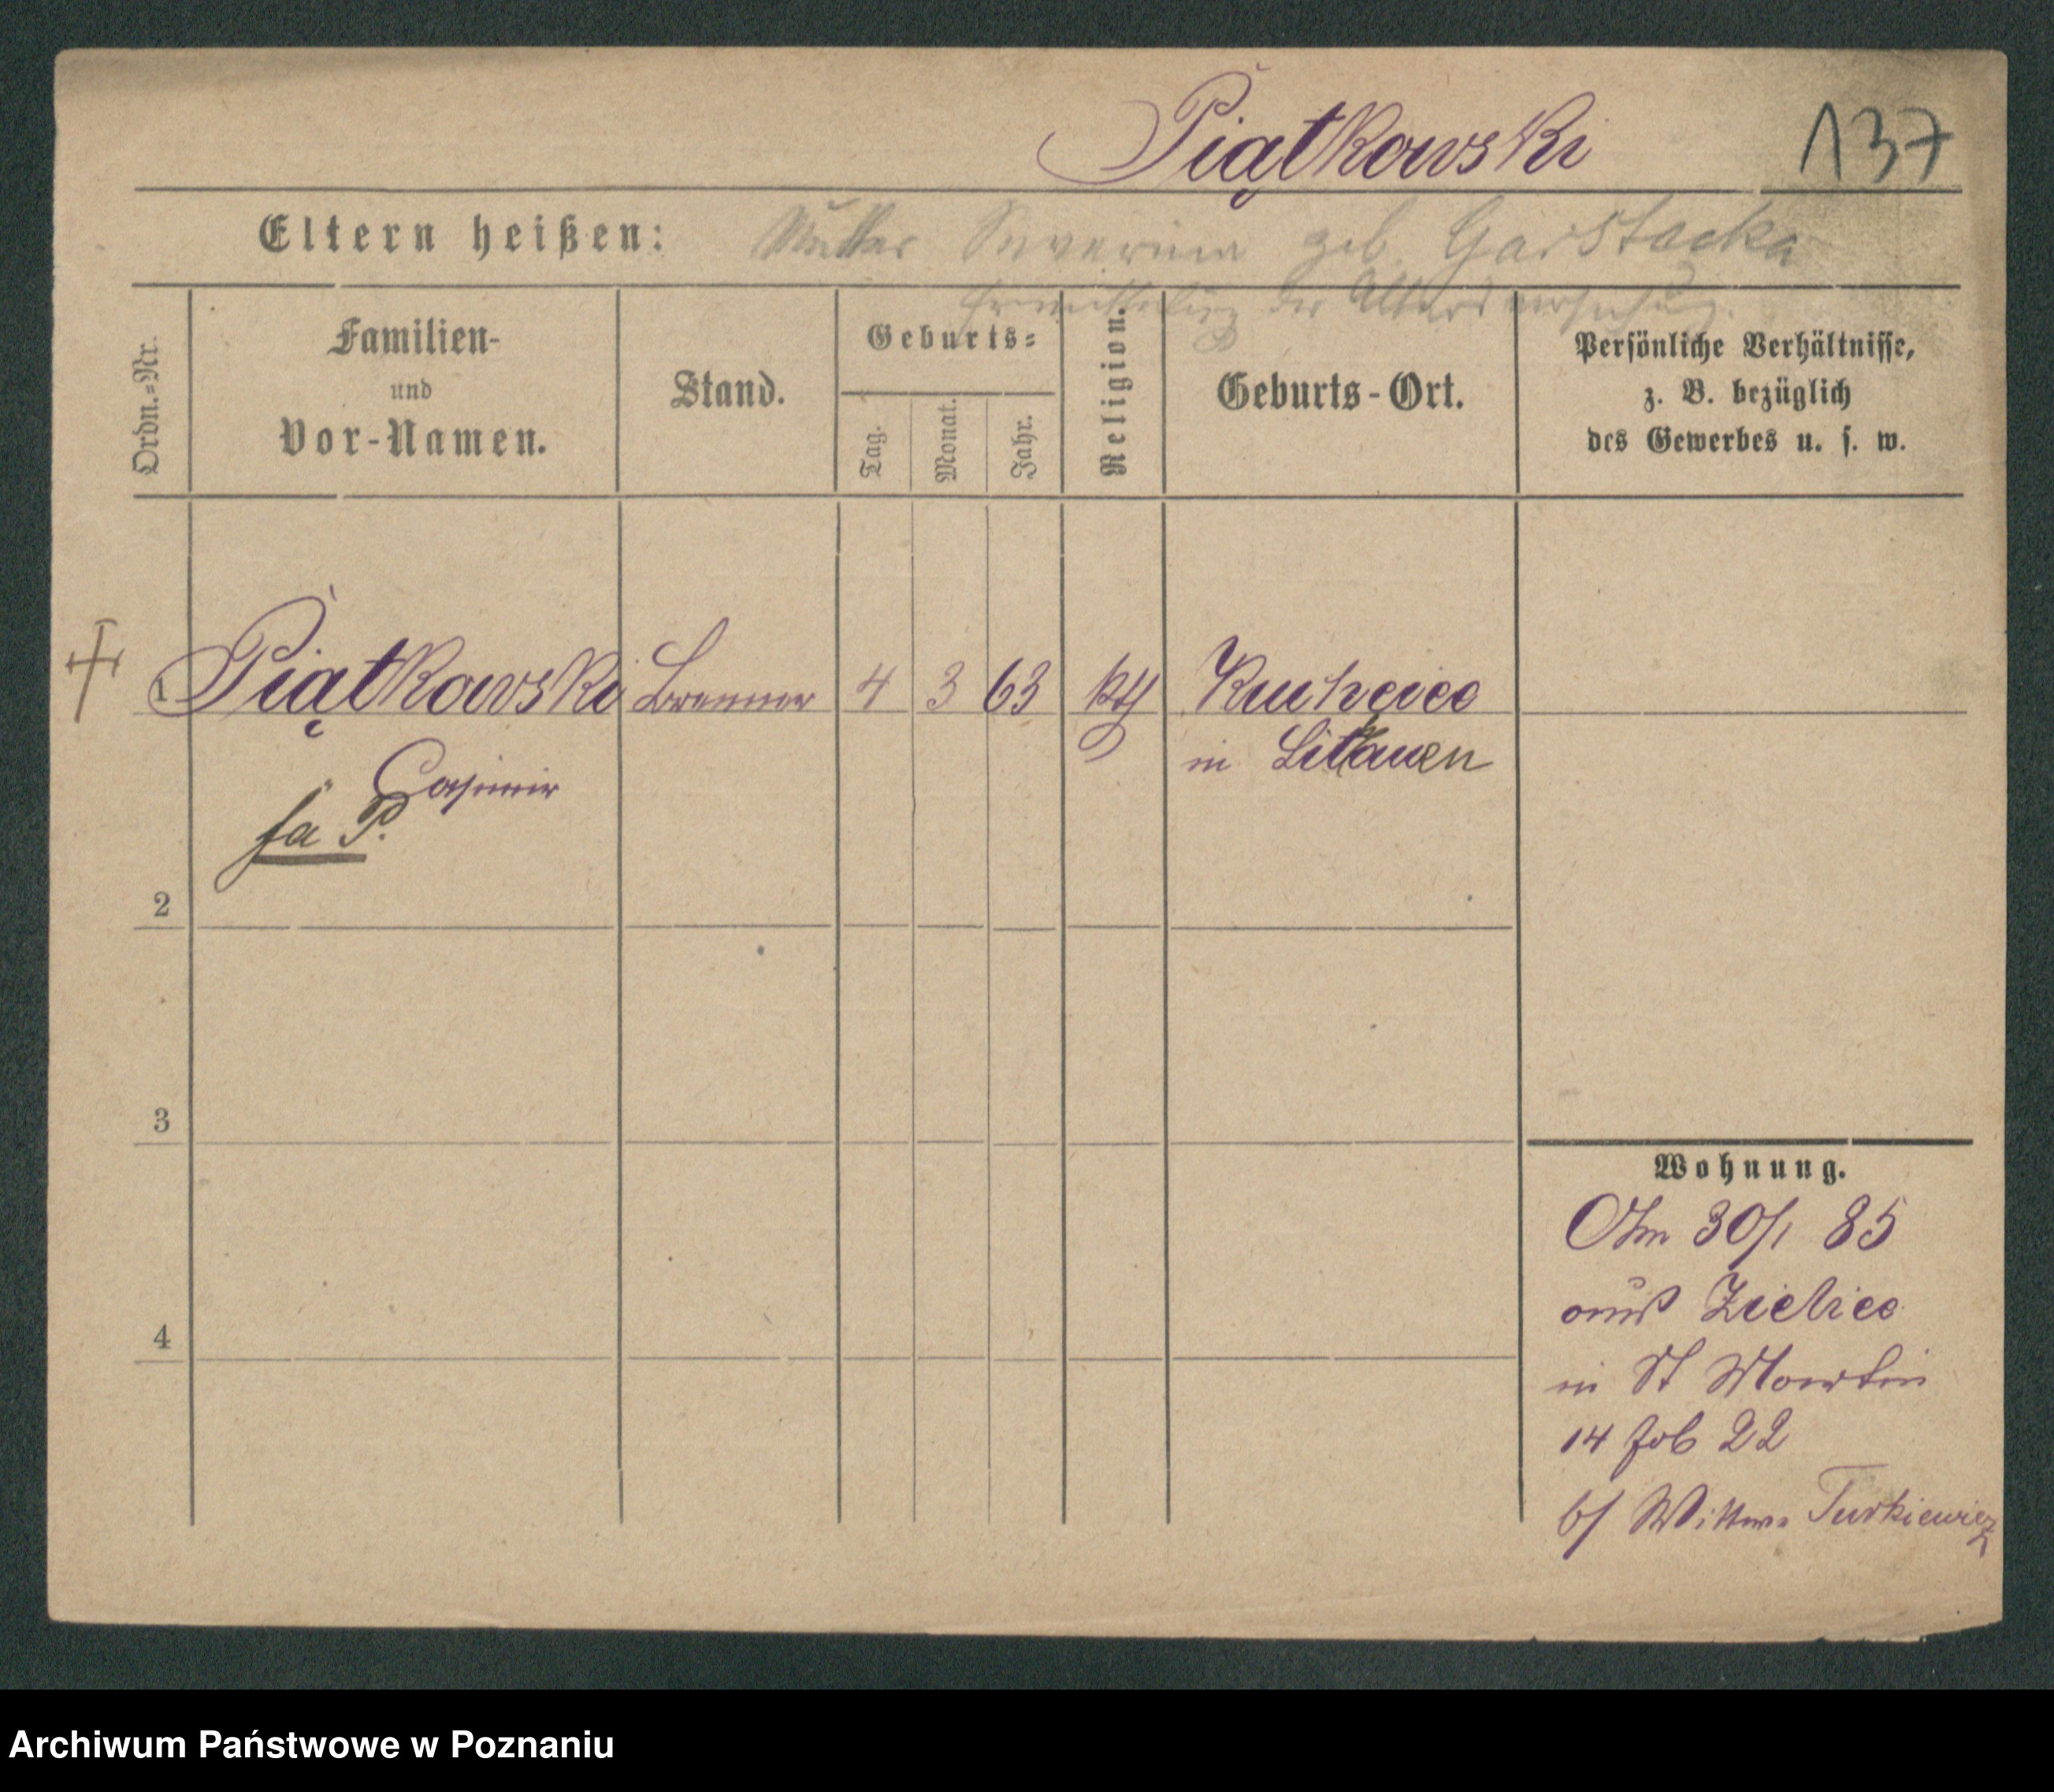 Piątkowski 137
Eltern heißen: Mutter Severina geb. Garstacka
der Alters
Ordn.=Nr.
Familien-
und
Vor-Namen.
Stand.
Geburts=
Tag.
Monat.
Jahr.
Religion.
Geburts-Ort.
Persönliche Verhältnisse,
z. B. bezüglich
des Gewerbes u. s. w.
1 Piątkowski Brenner 4 3 63 kth
in Littauen
Casimir
fa P.
2
3
4
Wohnung.
30/1 85
aus
in St Martin
14 Feb 22
b/ Wittwe Turkiewicz
Archiwum Państwowe w Poznaniu